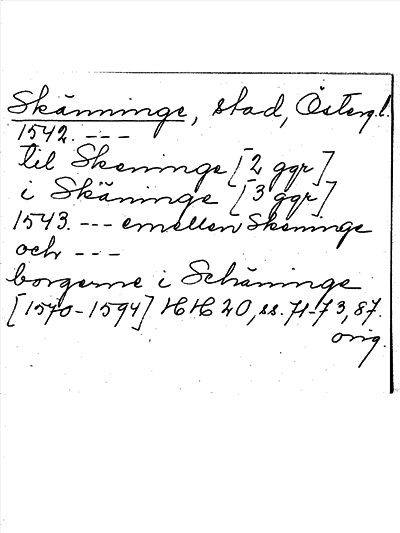 Skänninge, stad, Österg.l.
1542. ---
til Skeninge [2 ggr]
i Skäninge [3 ggr]
1543. --- emellen Skeninge
och ---
borgerne i Schäninge
[1570-1594] HH 20, ss. 71-73, 87.
orig.